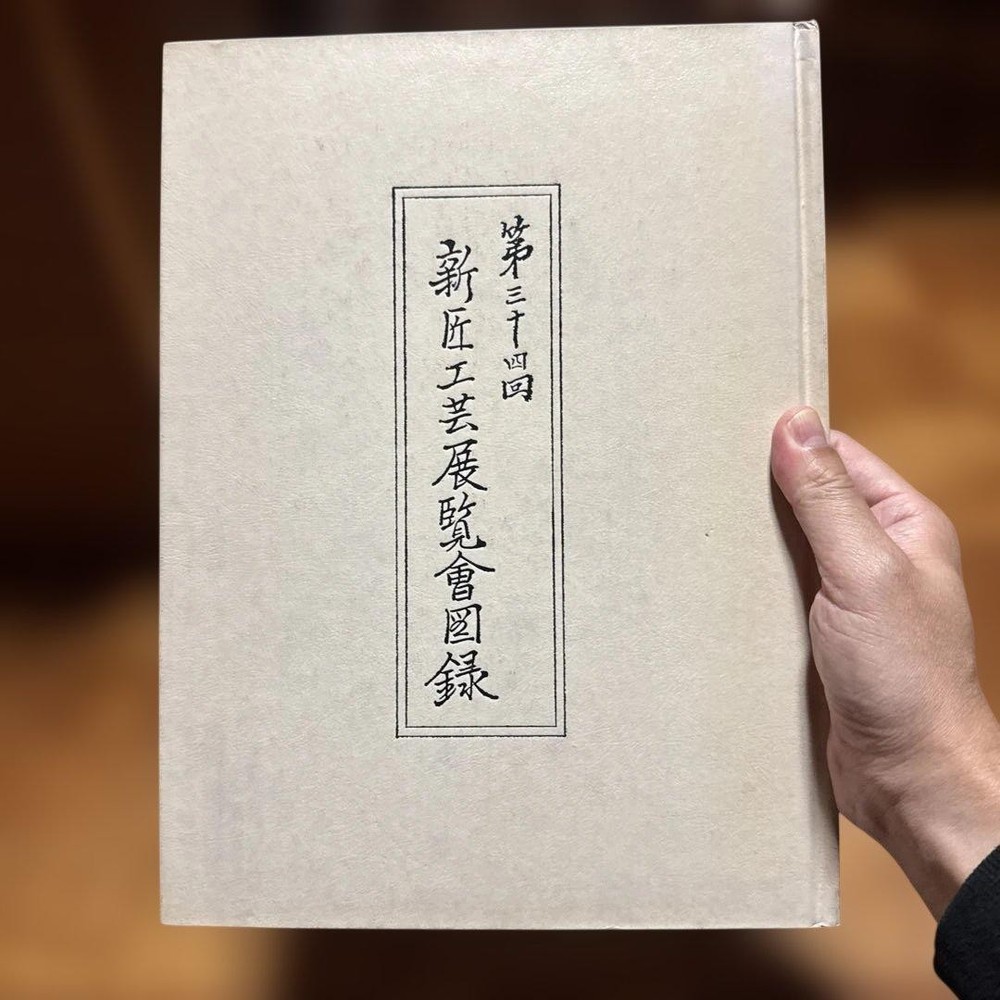 第三十四回
新匠工芸展覽會図録